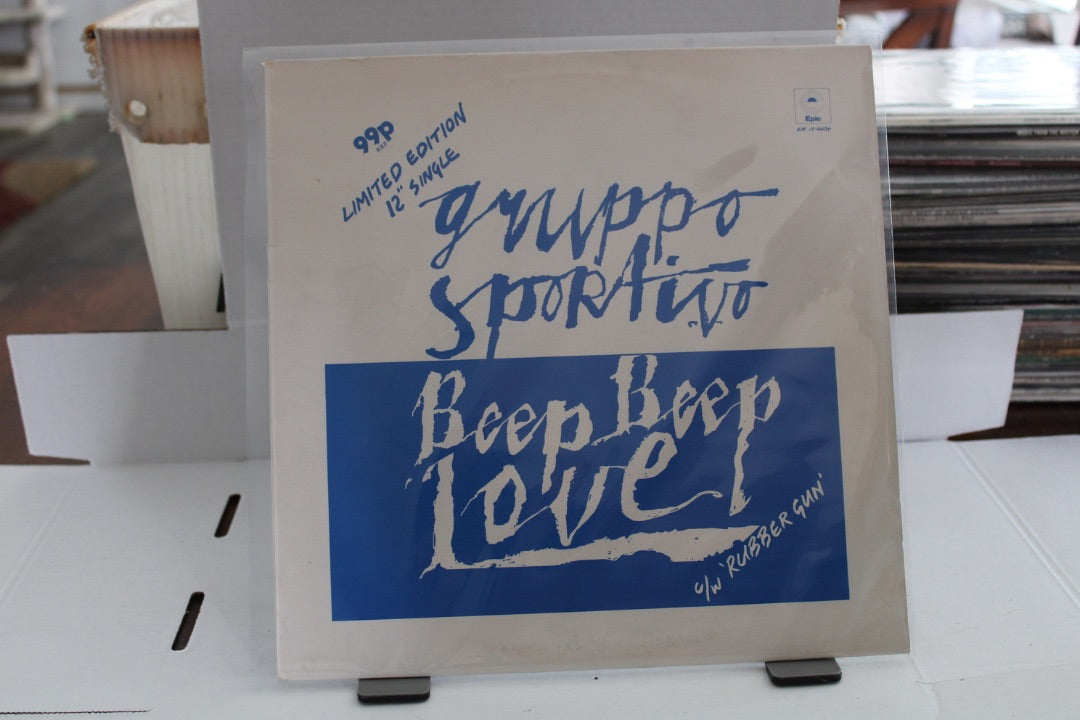 99p
R.R.P.
LIMITED EDITION
12" SINGLE
Epic
gruppo
sportivo
Beep Beep
Love
c/w 'RUBBER GUN'